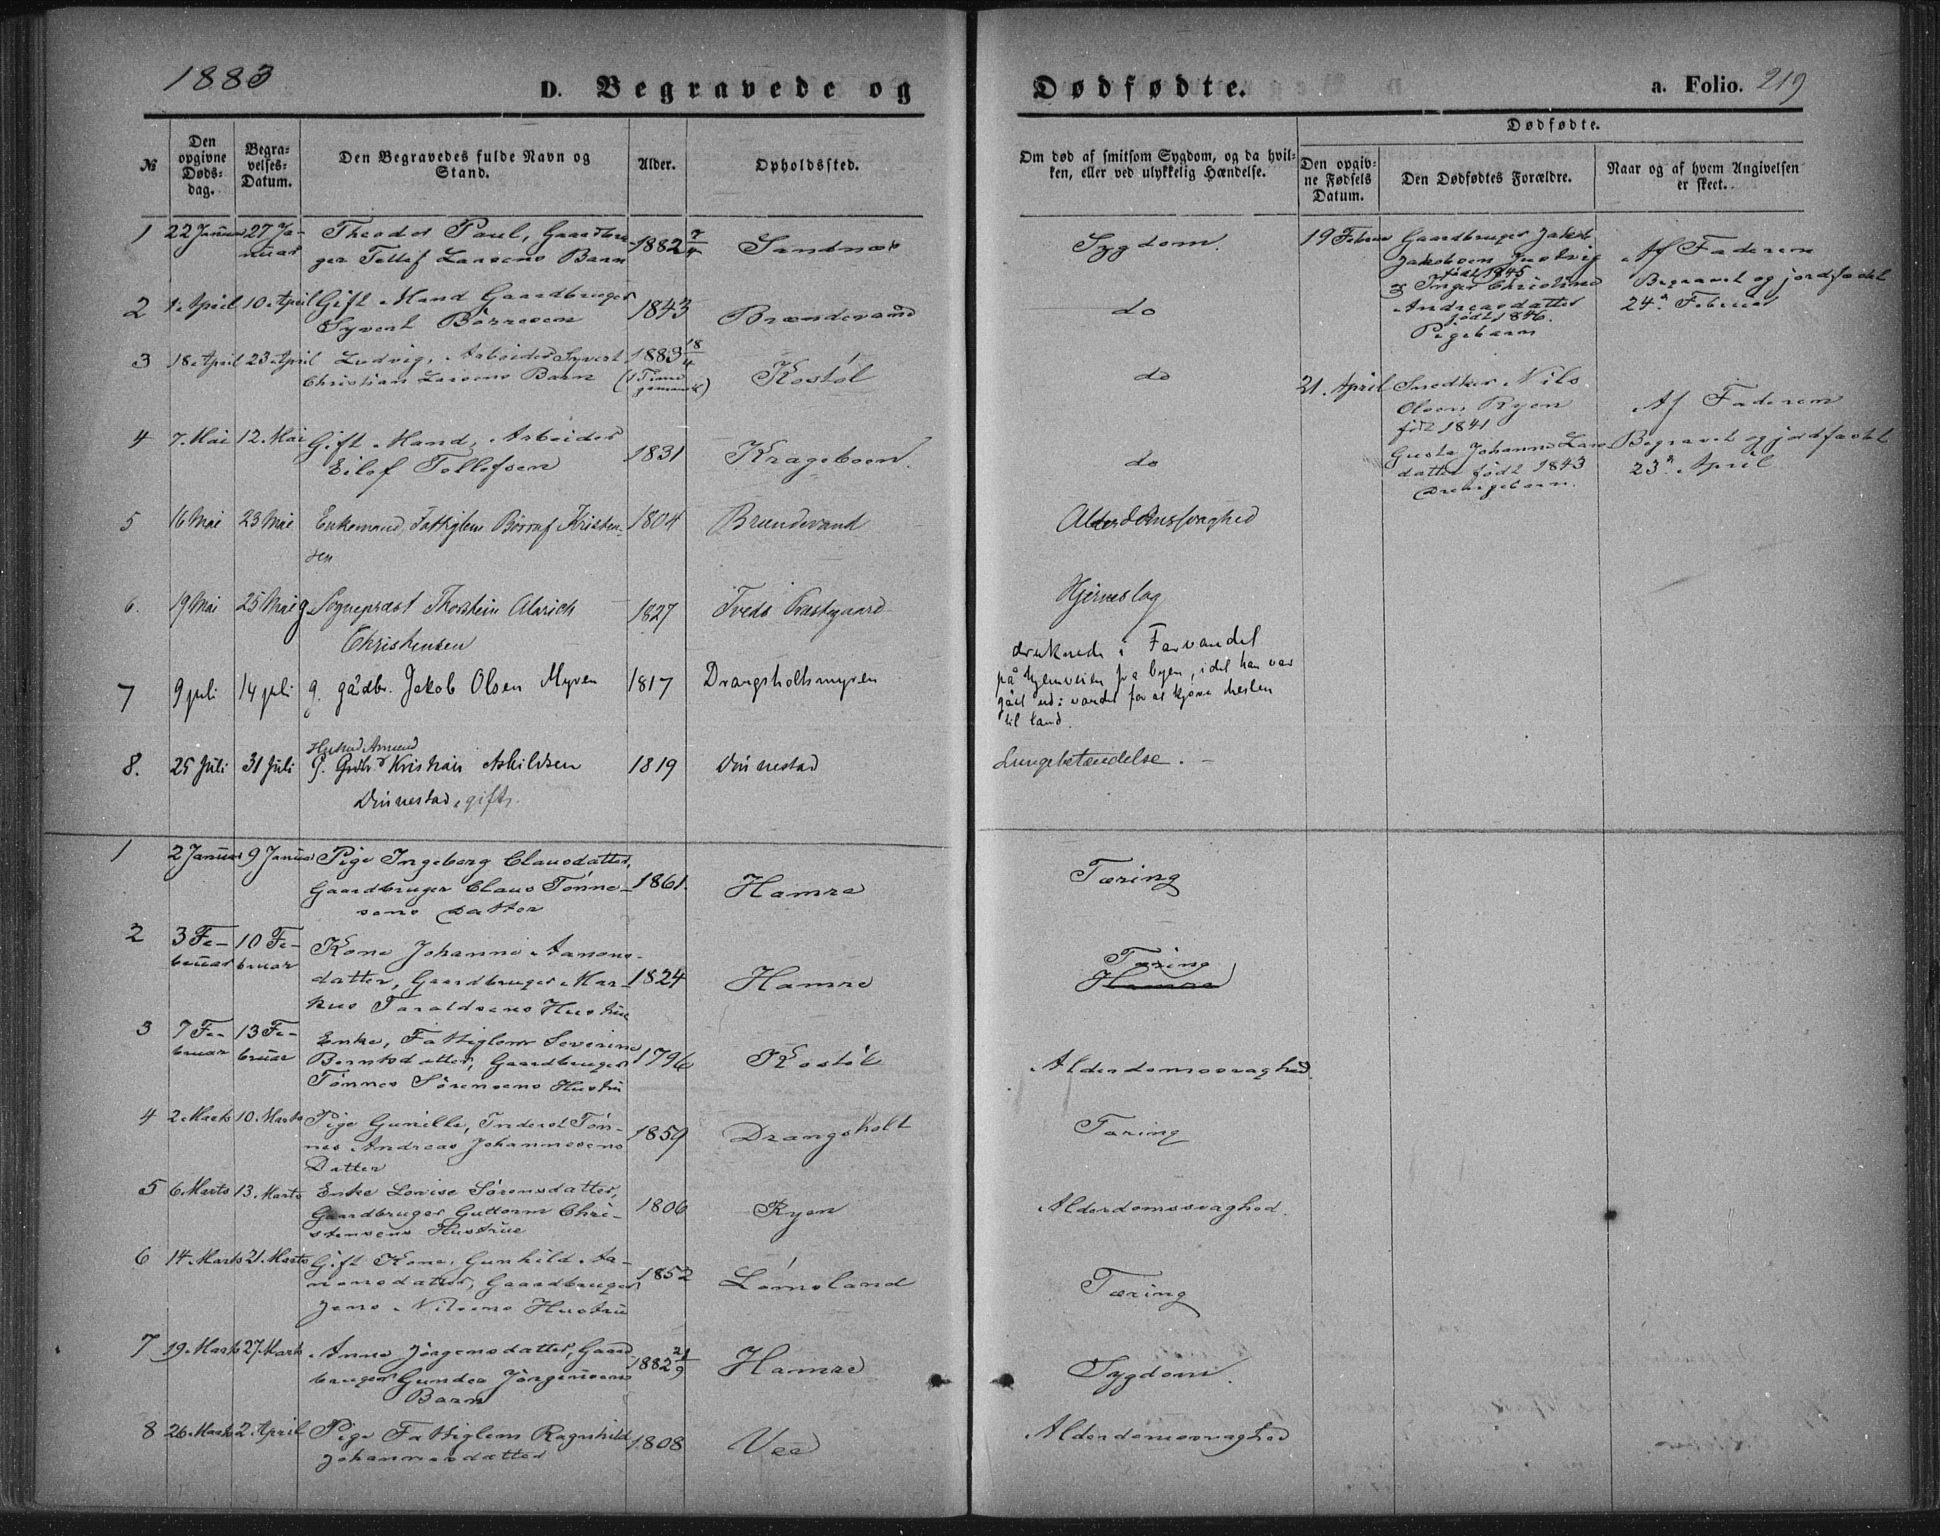 1883
D. Begravede og
Dødfødte.
a. Folio. 219
№
Den opgivne Døds-dag.
Begra-velses-Datum.
Den Begravedes fulde Navn og Stand.
Alder.
Opholdssted.
Om død af smitsom Sygdom, og da hvil-
ken, eller ved ulykkelig Hændelse.
Dødfødte.
Den opgiv-ne Fødsels Datum.
Den Dødfødtes Forældre.
Naar og af hvem Angivelsen er skeet.
1 22 Januar 27 Ja- Theodor Paul, Gaardbru- 1882 7/4 Sandnæs Sygdom.
nuar ger Tellef Larsens Barn
2 1. April 10. April Gift Mand Gaardbruger 1843 Brændevand do
Syvert Börresen
3 18. April 23. April Ludvig, Arbeider Syvert 1883 18/4 Kostöl do
Christian Larsens Barn (1 Time gammelt)
4 7. Mai 12. Mai Gift Mand, Arbeider 1831 Krageboen. do
Eilef Tellefsen
5 16 Mai 23 Mai Enkemand, Fattiglem Börruf Kristen- 1804 Brændevand Alderdomssvaghed
sen
6. 19 Mai 25 Mai g. Sogneprest Thorstein Alarich 1827 Tveds Præstgaard Hjerneslag
Christensen
7 9 juli 14 juli g. gådbr. Jakob Olsen Myren 1817 Drangsholtsmyren druknede i Farvandet
på hjemveien fra byen, idet han var
gået ud i vandet for at kjøre hesten
til land.
8. 25 Juli 31 Juli G. Grdbr Kristian Askildsen 1819 Drinnestad Lungebetændelse. –
Drinnestad, gift.
19 Februar Gaardbruger Jakob Af Faderen
Jakobsen Justvig
født 1845 Begravet og jordfæstet
& Inger Christine 24de Februar
Andreasdatter
født 1846.
Pigebarn
21. April Snedker Nils Af Faderen
Olsen Ryen
født 1841 Begravet og jordfæstet
Gusta Johanne Lars- 23de April
datter født 1843
Drengebarn.
1 2 Januar 9 Januar Pige Ingeborg Clausdatter, 1861. Hamre Tæring
Gaardbruger Claus Tønne-
sens Datter
2 3 Fe- 10 Fe- Kone Johanne Aamons- 1824 Hamre Tæring
bruar bruar datter, Gaardbruger Mar- Hamre
kus Taraldsens Hustru
3 7 Fe- 13 Fe- Enke, Fattiglem Severine 1796 Kostöl Alderdomssvaghed.
bruar bruar Berntsdatter, Gaardbruger
Tønnes Sørensens Hustru
4 2. Marts 10. Marts Pige Gunille, Inderst Tøn- 1859 Drangsholt Tæring
nes Andreas Johannesens
Datter
5 6. Marts 13. Marts Enke Lovise Sørensdatter, 1806 Ryen Alderdomssvaghed.
Gaardbruger Guttorm Chri-
stensens Hustrue
6 14. Marts 21. Marts Gift Kone, Gunhild Aa- 1852 Lömsland Tæring
monsdatter, Gaardbruger
Jens Nilsens Hustru
7 19. Marts 27. Marts Anne Jörgensdatter, Gaard- 1882 21/9 Hamre Sygdom.
bruger Gunder Jörgensens
Barn
8 26. Marts 2. April Pige Fattiglem Ragnhild 1808 Vee Alderdomssvaghed
Johannesdatter